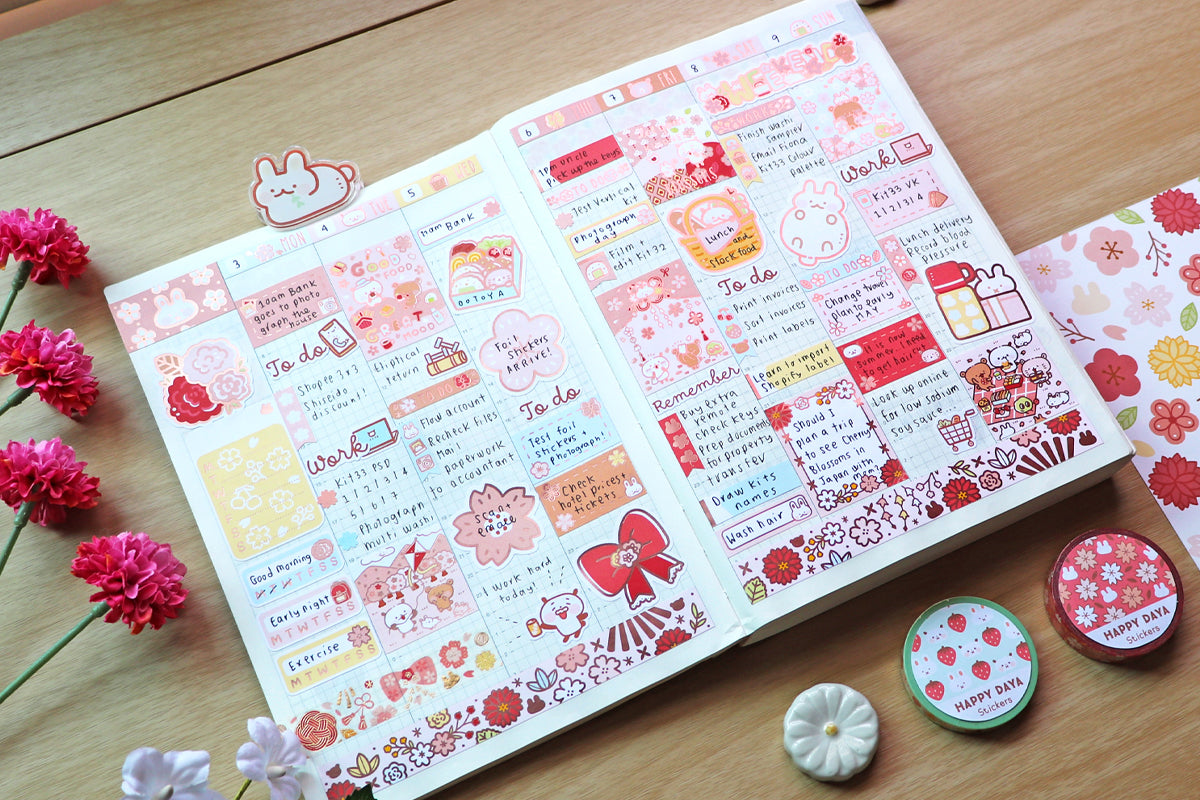 3
MON
10am Bank
goes to photo
graph the
house
To do
Shopee 3x3
Shiseido
discount!
Work
Kit33 PSD
1/2/3/4
5/6/7
Photograph
multi washi
Good morning
MTWTFSS
Early Night
MTWTFSS
Exercise
MTWTFSS
4
TUE
GOOD
FOOD
GREAT
MOOD
Eliptical
return
TO DO
Flow account
Recheck Files
Mail
paperwork
to accountant
5
WED
11am Bank
OOTOYA
Foil
Stickers
ARRIVE!
To do
Test foil
stickers +
photograph!
Check
hotel prices
tickets
Scan +
email
I work hard
today!
6
THU
1pm uncle
pick up the keys
TO DO
Test Vertical
kit
Photograph
day
Film +
edit Kit 32
Remember
Buy extra
remote
check keys
Prep documents
for property
transfer
Draw Kits
names
Wash hair
7
FRI
Lunch
and
Stock food
To do
Print invoices
Sort invoices
Print labels
Learn to import
Shopify label
Should I
plan a trip
to see Cherry
Blossoms in
Japan with
mom?
8
SAT
WEEKEND
WORK
Finish washi
sampler
Email Fiona
Kit33 Colour
Palette
TO DO
Change travel
plan to early
MAY
It is now
summer. I need
to get haircut
9
SUN
Work
Kit33 VK
1/2/3/4
Lunch delivery
Record blood
Pressure
Look up online
for low sodium
soy sauce
HAPPY DAYA
Stickers
HAPPY DAYA
Stickers